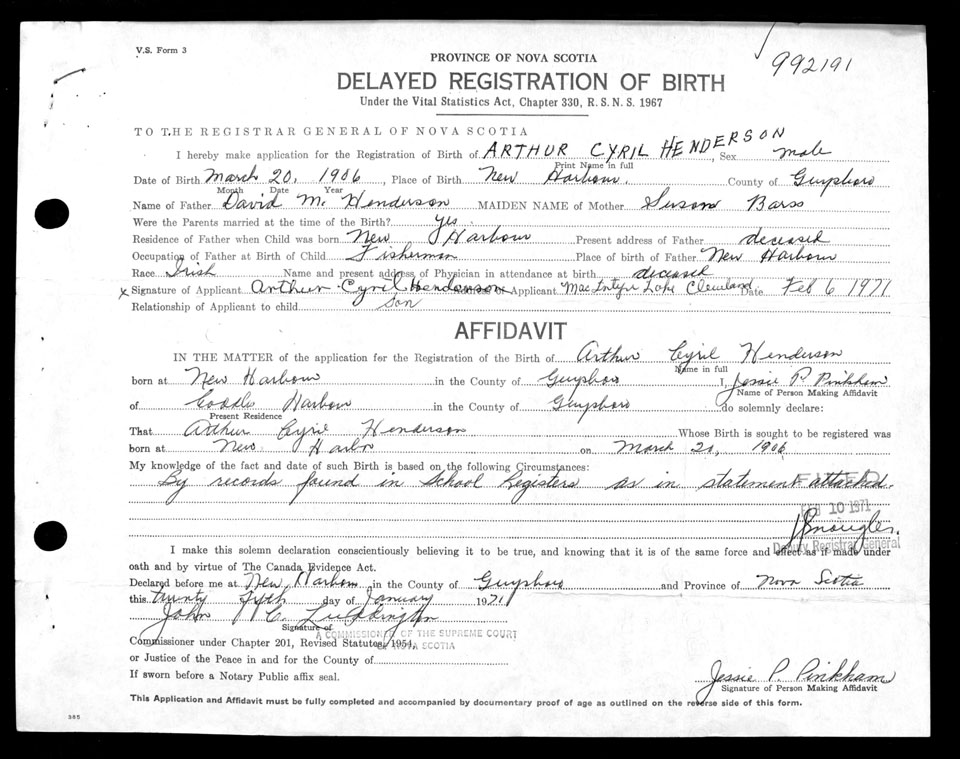 V.S. Form 3
992191
PROVINCE OF NOVA SCOTIA
DELAYED REGISTRATION OF BIRTH
Under the Vital Statistics Act, Chapter 330, R.S.N.S. 1967
TO THE REGISTRAR GENERAL OF NOVA SCOTIA
I hereby make application for the Registration of Birth of ARTHUR CYRIL HENDERSON, Sex male
Print Name in full
Date of Birth March 20, 1906, Place of Birth New Harbour. County of Guysboro
Month Date Year
Name of Father David M. Henderson MAIDEN NAME of Mother Susan Barss
Were the Parents married at the time of the Birth? yes.
Residence of Father when Child was born New Harbour Present address of Father deceased
Occupation of Father at Birth of Child Fisherman Place of birth of Father New Harbour
Race Irish Name and present address of Physician in attendance at birth deceased
x Signature of Applicant Arthur Cyril Henderson Address of Applicant MacIntyre Lake Cleveland Date Feb 6 1971
Relationship of Applicant to child Son
AFFIDAVIT
IN THE MATTER of the application for the Registration of the Birth of Arthur Cyril Henderson
Name in full
born at New Harbour in the County of Guysboro I, Jessie P. Pinkham
Name of Person Making Affidavit
of Harbour in the County of Guysboro do solemnly declare:
Present Residence
That Arthur Cyril Henderson Whose Birth is sought to be registered was
born at New Harbr on March 20, 1906
My knowledge of the fact and date of such Birth is based on the following Circumstances:
By records found in School Registers as in statement attached.
10 1971
Deputy Registrar General
I make this solemn declaration conscientiously believing it to be true, and knowing that it is of the same force and effect as if made under
oath and by virtue of The Canada Evidence Act.
Declared before me at New Harbour in the County of Guysboro and Province of Nova Scotia
this twenty fifth day of January 1971
John C. Luddington
Signature of
A COMMISSIONER OF THE SUPREME COURT
OF NOVA SCOTIA
Commissioner under Chapter 201, Revised Statutes, 1954,
or Justice of the Peace in and for the County of
If sworn before a Notary Public affix seal.
Jessie P. Pinkham
Signature of Person Making Affidavit
This Application and Affidavit must be fully completed and accompanied by documentary proof of age as outlined on the reverse side of this form.
385